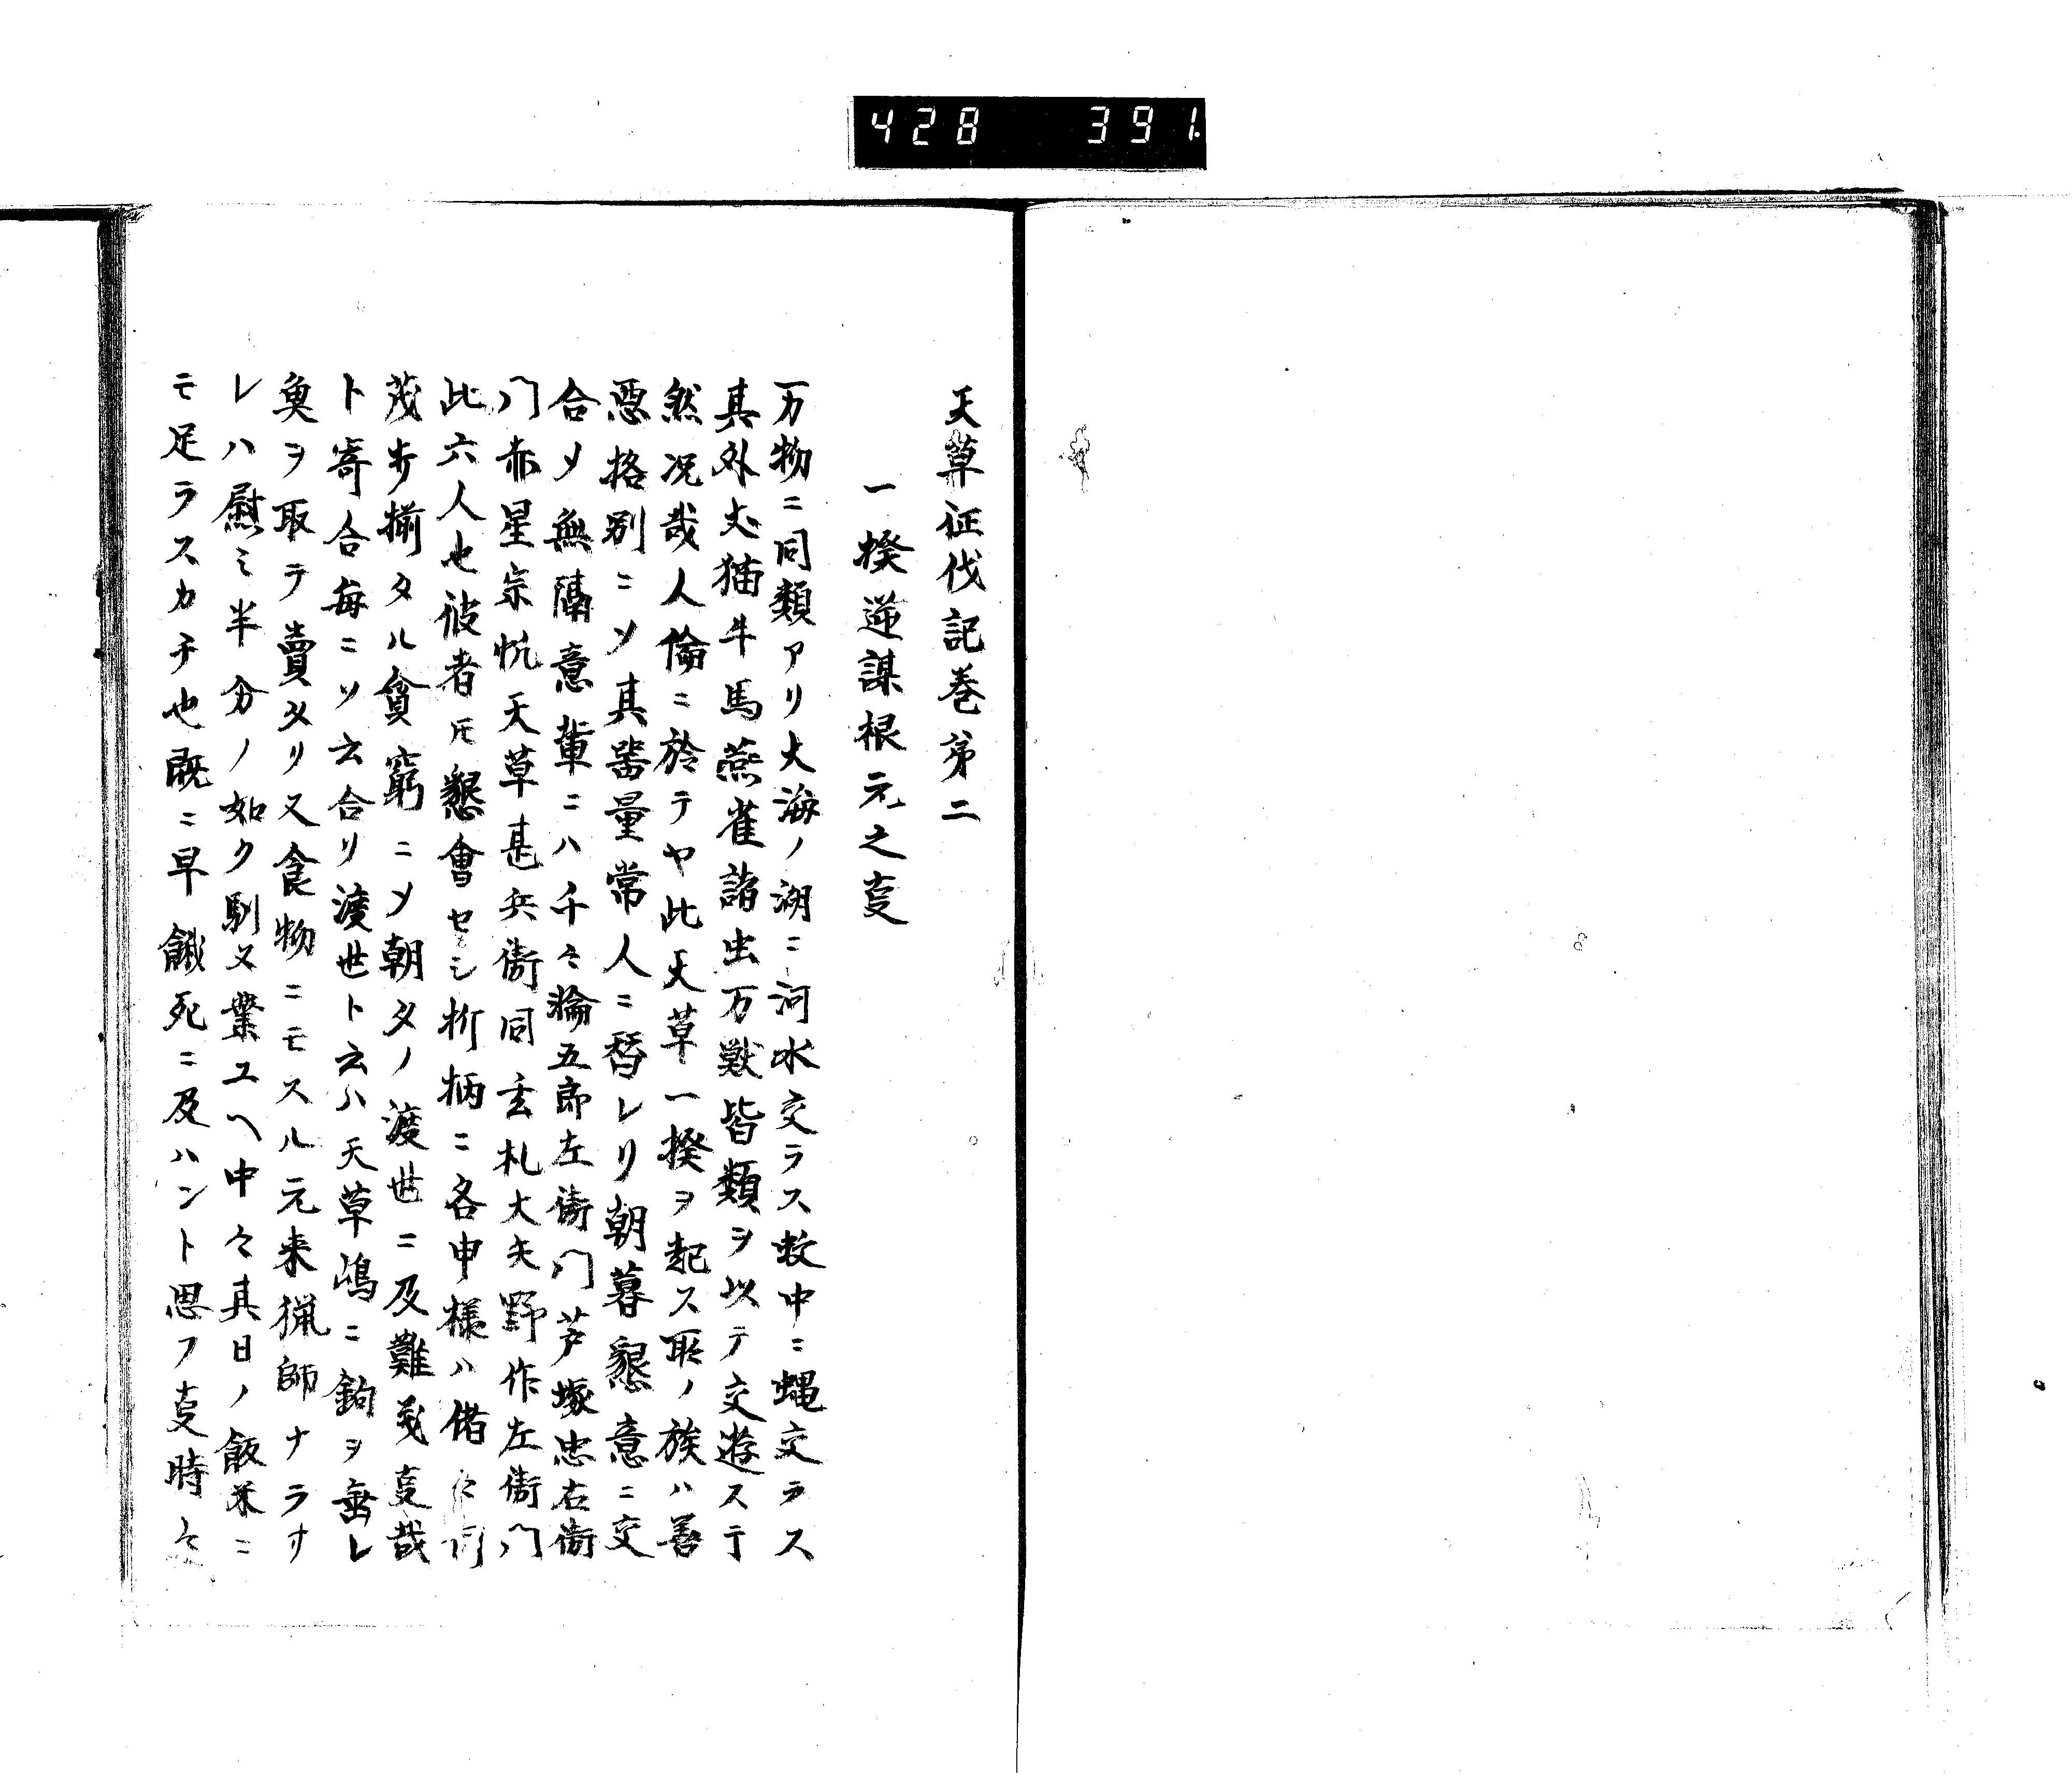 428 391
天草征伐記巻第二
一揆逆謀根元之叓
万物ニ同類アリ大海ノ潮ニ河水交ラス蚊中ニ蝿交ラス
其外犬猫牛馬燕雀諸虫万獣皆類ヲ以テ交遊ス
然况哉人倫ニ於テヤ此天草一揆ヲ起ス所ノ族ハ善
悪格別ニソ其器量常人ニ替レリ朝暮懇意ニ交
合メ無隔意輩ニハ千々輪五郎左衛門芦塚忠右衛
門赤星宗帆天草甚兵衛同玄札大矢野作左衛門
此六人也彼者𪜈懇會セシ折柄ニ各申様ハ偖
茂揃タル貧窮ニメ朝夕ノ渡世ニ及難義叓哉
ト寄合毎ニソ云合リ渡世ト云ハ天草嶋ニ鉤ヲ垂レ
魚ヲ取テ賣タリ又食物ニモスル元来猟師ナラサ
レハ慰ミ半分ノ如ク馴又業ユヘ中々其日ノ飯米ニ
モ足ラスカチ也既ニ早餓死ニ及ハント思フ叓時々